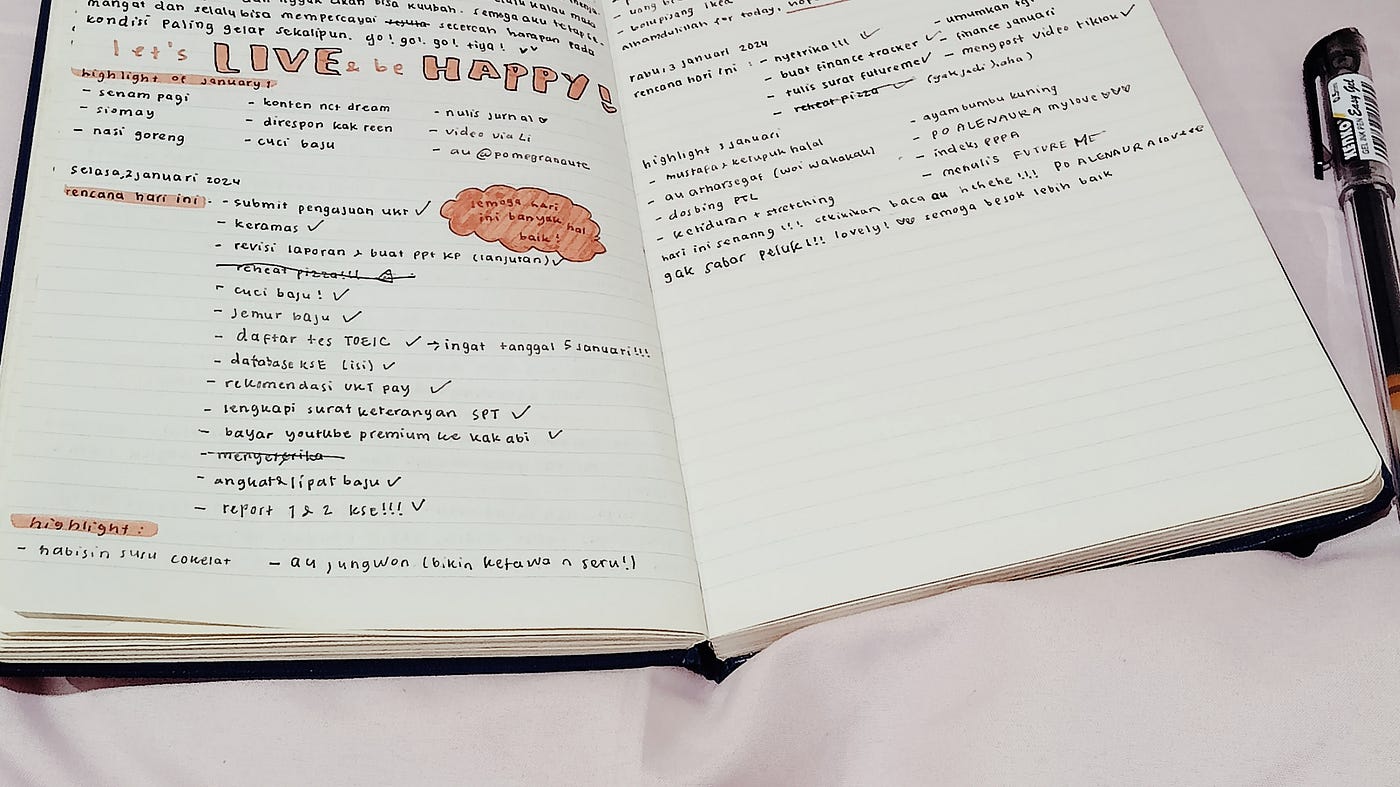 mangat dan selalu bisa mempercayai secercah harapan pada
kondisi paling gelar sekalipun. go! go! go! tiya!
let's LIVE & be HAPPY!
highlight of january 1
- senam pagi
- siomay
- nasi goreng
- konten nct dream
- direspon kak reen
- cuci baju
- nulis jurnal
- video via Li
- au @pomegranate
selasa, 2 januari 2024
rencana hari ini:
- submit pengajuan UKT ✓
- keramas ✓
- revisi laporan & buat ppt KP (lanjutan) ✓
- reheat pizza!!!
- cuci baju! ✓
- jemur baju ✓
- daftar tes TOEIC ✓ → ingat tanggal 5 januari!!!
- database KSE (isi) ✓
- rekomendasi UKT pay ✓
- lengkapi surat keteranyan SPT ✓
- bayar youtube premium ke kak abi ✓
- menyetrika
- angkat & lipat baju ✓
- report 1 & 2 kse!!! ✓
semoga hari
ini banyak hal
baik!
highlight:
- habisin susu cokelat
- au jungwon (bikin ketawa n seru!)
- uang
alhamdulillah for today,
rabu, 3 januari 2024
rencana hari ini :
- nyetrika!!! ✓
- buat finance tracker ✓
- tulis surat futureme ✓
- reheat pizza ✓ (gak jadi), haha)
- umumkan
- finance januari
- mengpost video tiktok ✓
highlight 3 januari
- mustafa & kerupuk halal
- au atharsegaf (woi wakakak)
- dosbing PTL
- ketiduran + stretching
- ayam bumbu kuning
- PO ALENAURA my love ♡♡♡
- indeks PPPA
- menulis FUTURE ME
hari ini senanng !!! cekikikan baca au hehehe !!! PO ALENAURA
gak sabar peluk!!! lovely! ♡♡ semoga besok lebih baik
KENKO
Easy Gel
GEL INK PEN